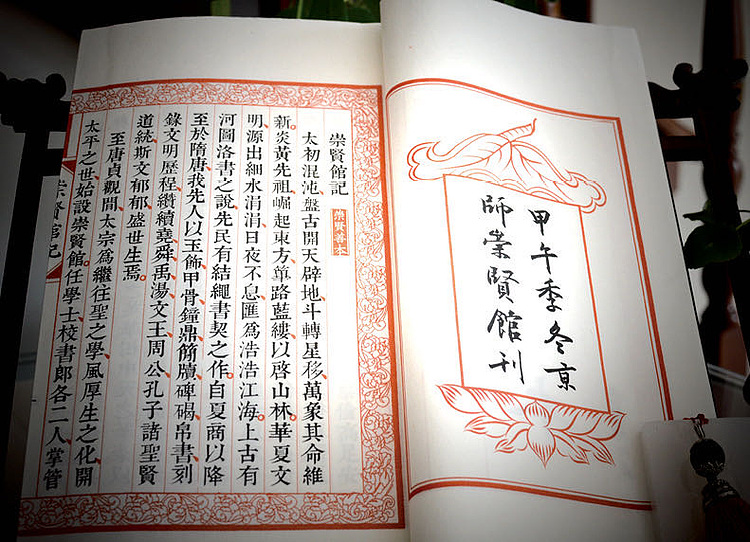 甲午季冬京
師崇賢館刊
崇賢館記
崇賢善本
太初混沌盤古開天辟地斗轉星移萬象其命維
新炎黃先祖崛起東方篳路藍縷以啓山林華夏文
明源出細水涓涓日夜不息匯爲浩浩江海上古有
河圖洛書之說先民有結繩書契之作自夏商以降
至於隋唐我先人以玉飾甲骨鐘鼎簡牘碑碣帛書刻
錄文明歷程纘續堯舜禹湯文王周公孔子諸聖賢
道統斯文郁郁盛世生焉
至唐貞觀間太宗爲繼往聖之學風厚生之化開
太平之世始設崇賢館任學士校書郎各二人掌管
崇賢館記